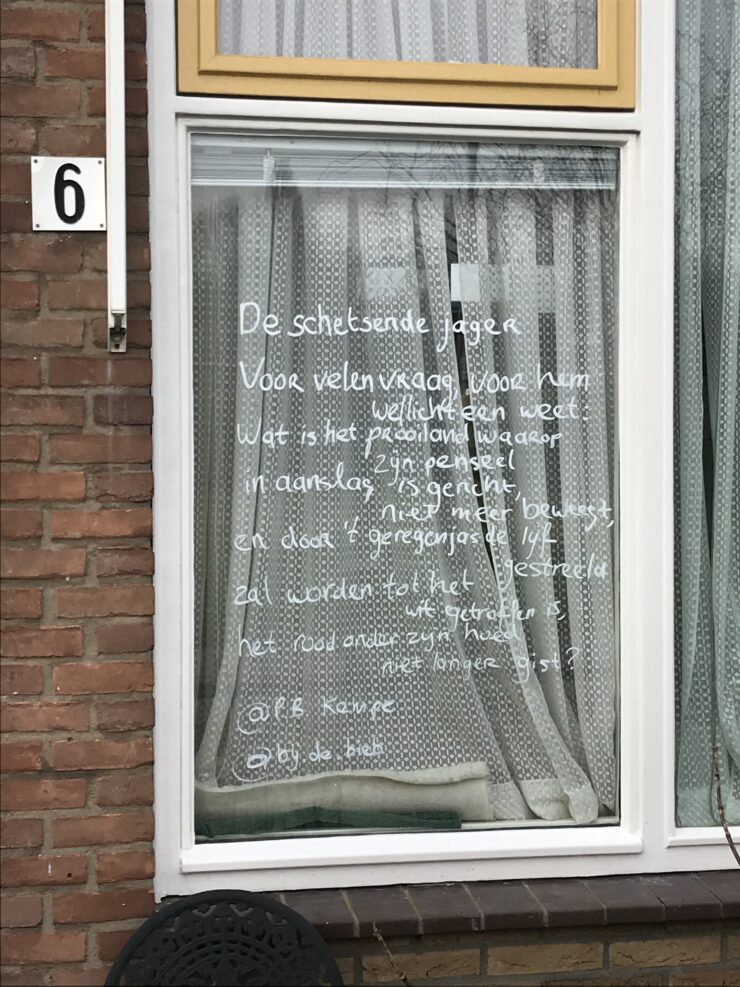 6
De schetsende jager
Voor velen vraag, voor hem
wellicht een weet:
Wat is het prooiland waarop
zijn penseel
in aanslag is gericht,
niet meer beweegt,
en door 't geregenjaste lijf
gestreeld
zal worden tot het
wit getroffen is,
het rood onder zijn hoed
niet longer gist?
@P.B Kempe
@by de bieb